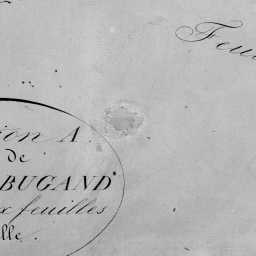 Feui
ion A.
de
BUGAND
x feuilles
lle.